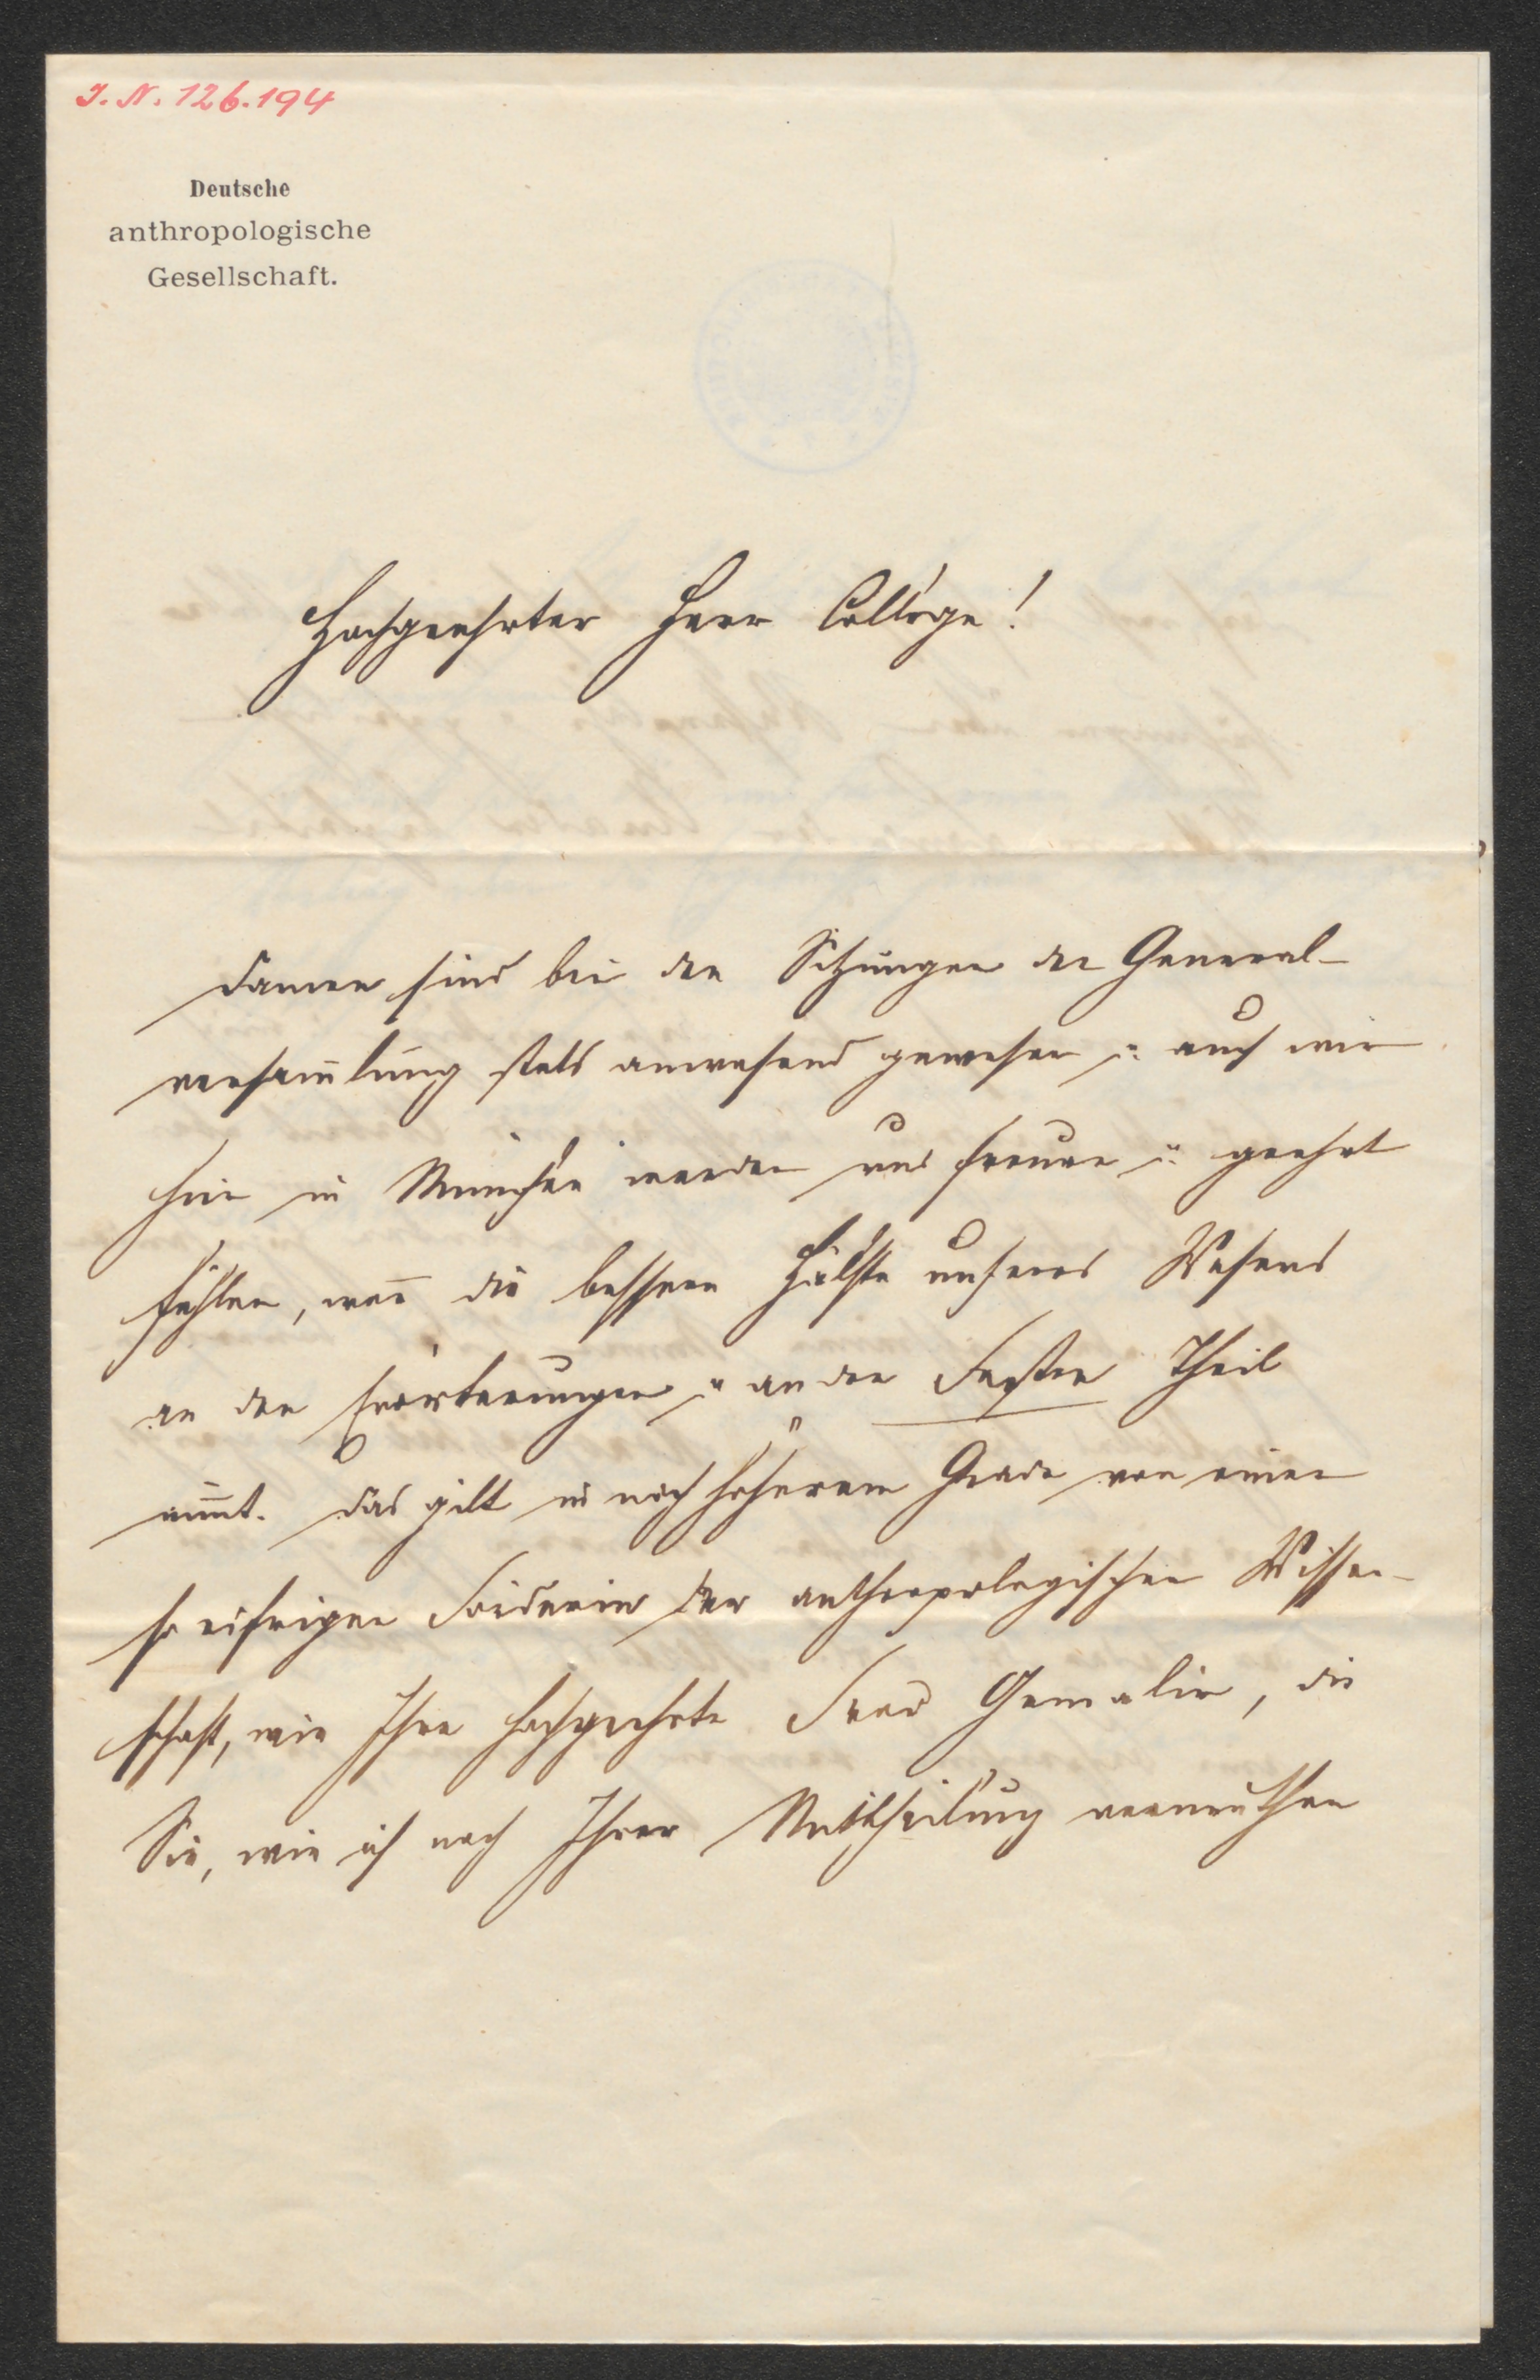 J. N. 126.194
Deutsche
anthropologische
Gesellschaft.
Hochgeehrter Herr College!
Damen sind bei den Sitzungen der General-
versam̄lung stets anwesend gewesen u. auch wir
hier in München werden uns freuen u. geehrt
fühlen, wen̄ die bessere Hälfte unseres Wesens
an den Erörterungen u an den Festen Theil
nim̄t. Das gilt in noch höherem Grade von einer
so eifrigen Förderin der anthropologischen Wissen-
schaft, wie Ihre hochgeehrte Frau Gemalin, die
Sie, wie ich nach Ihrer Mittheilung vermuthen